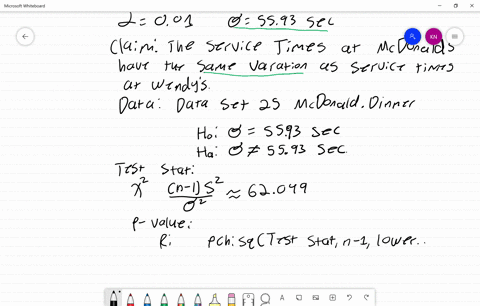 Microsoft Whiteboard
α = 0.01 σ = 55.93 sec
KN
Claim: The service Times at McDonald's
have the same varation as service times
at Wendy's.
Data: Data Set 25 McDonald.Dinner
H₀: σ = 55.93 sec
Ha: σ ≠ 55.93 sec.
Test Stat:
χ² (n-1)S²/σ² ≈ 62.049
P-value:
R: pchisq(Test Stat, n-1, lower..